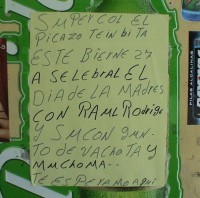 SUPER COL EL
PICAZO TEINBITA
ESTE BIERNE 27
A SELEBRAL EL
DIA DE LA MADRES
CON RAUL Rodrigo
Y SU CON JUN
TO DE VACHATA Y
MUCHO MA..
TE ESPERAMO AQUI
PILAS ALCALINAS